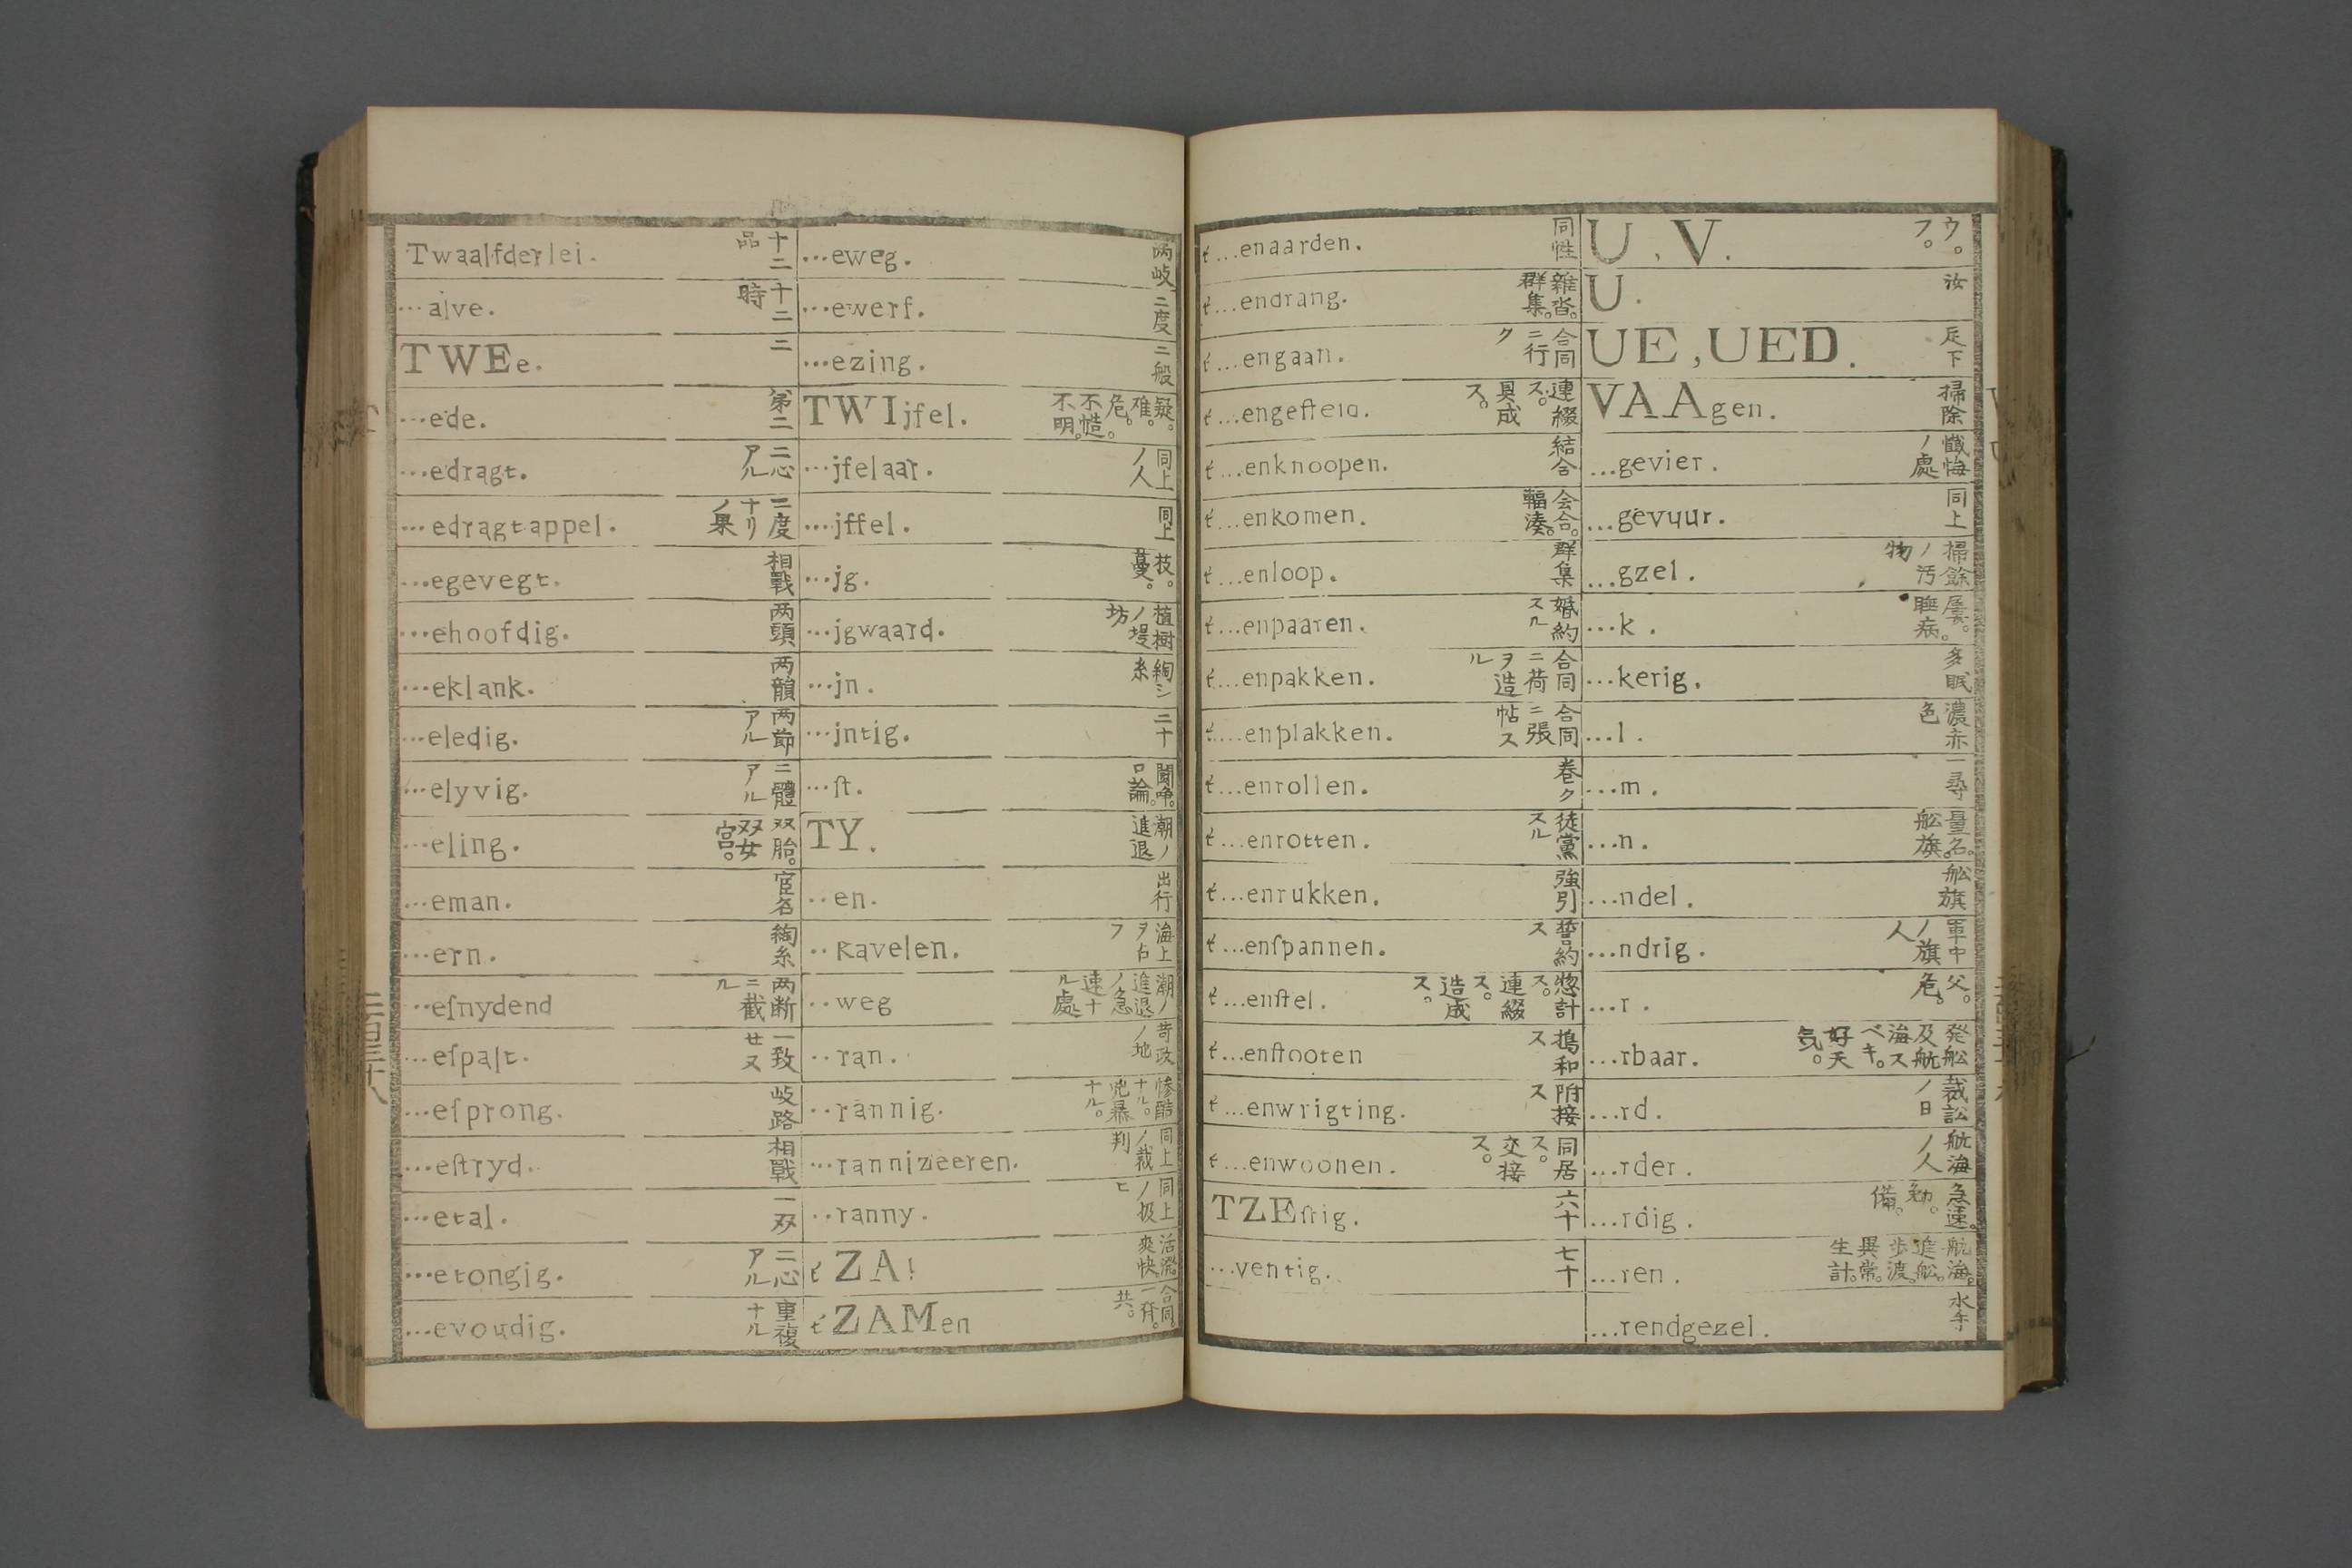 Twaalfderlei. 十二品
...alve. 十二時
TWEe. 二
...ede. 第二
...edragt. 二心アル
...edragtappel. 二度ナリノ果
...egevegt. 相戰
...ehoofdig. 两頭
...eklank. 两韻
...eledig. 两節アル
...elyvig. 二體アル
...eling. 双胎。双女宮。
...eman. 官名
...ern. 綯糸
...eſnydend 两断ニ截ル
...eſpalt. 一致セヌ
...eſprong. 岐路
...eſtryd. 相戰
...etal. 一双
...etongig. 二心アル
...evoudig. 重複ナル
...eweg. 两岐
...ewerf. 二度
...ezing. 二般
TWIjfel. 疑。难。危。不慥。不明。
...jfelaar. 同上ノ人
...jffel. 同上
...jg. 枝。蔓。
...jgwaard. 植樹ノ堤坊
...jn. 綯シ糸
...jntig. 二十
...ſt. 闘争。口論。
TY. 潮ノ進退
..en. 出行
..kavelen. 海上ヲ占フ
..weg 潮ノ進退ノ急速ナル處
..ran. 苛政ノ地
..rannig. 惨酷ナル。兇暴ナル。
...rannizeeren. 同上ノ裁判
..ranny. 同上ノ扱ヒ
t'ZA! 活溌爽快
t'ZAMen 合同。一齊。共。
t...enaarden. 同性
t...endrang. 雜沓。群集。
t...engaan. 合同ニ行ク
t...engeſteld. 連綴ス。具成ス。
t...enknoopen. 結合
t...enkomen. 会合。輻湊。
t...enloop. 群集
t...enpaaren. 婚約スル
t...enpakken. 合同ニ荷ヲ造ル
t...enplakken. 合同ニ張帖ス
t...enrollen. 巻ク
t...enrotten. 徒黨スル
t...enrukken. 強引
t...enſpannen. 誓約ス
t...enſtel. 惣計ス。連綴ス。造成ス。
t...enſtooten 搗和ス
t...enwrigting. 附接ス
t...enwoonen. 同居ス。交接ス。
TZEſtig. 六十
...ventig. 七十
U, V. ウ。フ。
U. 汝
UE, UED. 足下
VAAgen. 掃除
...gevier. 懺悔ノ處
...gevuur. 同上
...gzel. 掃餘ノ汚物
...k. 屡。睡病。
...kerig. 多眠
...l. 濃赤色
...m. 一尋
...n. 量名。舩旗。
...ndel. 舩旗
...ndrig. 軍中ノ旗人
...r. 父。危。
...rbaar. 発舩及航海スベキ。好天気。
...rd. 裁訟ノ日
...rder. 航海ノ人
...rdig. 急速。備。
...ren. 航海。進舩。歩渡。異常。生計。
...rendgezel. 水手